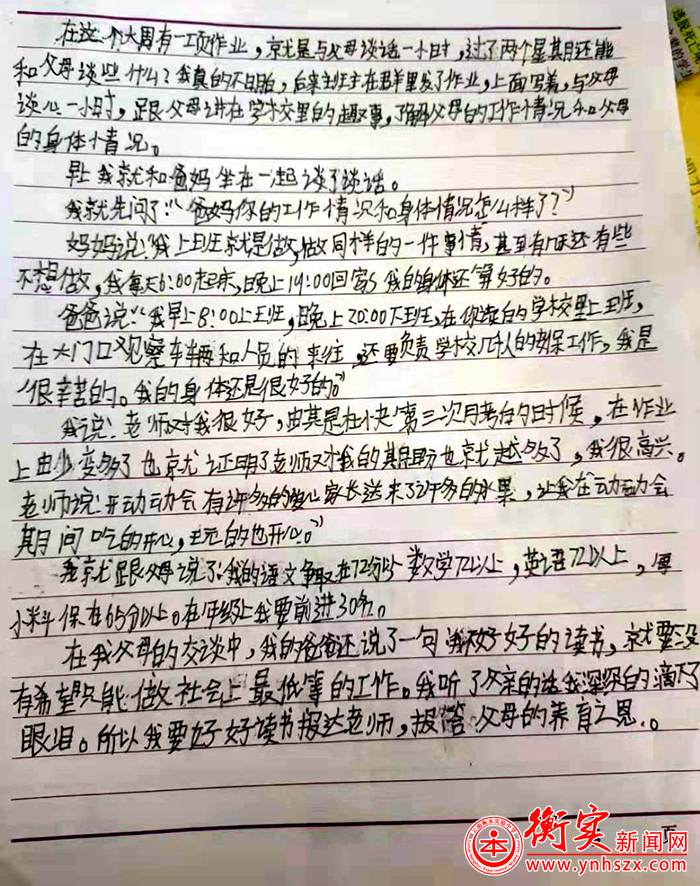 在这个大周有一项作业，就是与父母谈话一小时，过了两个星期还能
和父母谈些什么？我真的不明白，后来班主任在群里发了作业，上面写着，与父母
谈心一小时，跟父母讲在学校里的趣事，了解父母的工作情况和父母
的身体情况。
早上我就和爸妈坐在一起谈了谈话。
我就先问了：“爸妈你的工作情况和身体情况怎么样了？”
妈妈说：“我上班就是做，做同样的一件事情，甚至有几天还有些
不想做，我每天6:00起床，晚上19:00回家，我的身体还算好的。
爸爸说：“我早上8:00上班，晚上20:00下班，在你读的学校里上班，
在大门口观察车辆和人员的来往，还要负责学校几人的工作，我是
很辛苦的。我的身体还是很好的。”
我说：老师对我很好，由其是在快第三次月考的时候，在作业
上由少变多了也就证明了老师对我的其期盼也就越多了，我很高兴。
老师说开动动会有许多的爱心家长送来了许多的水果，让我在动动会
期间吃的开心，玩的也开心。”
我就跟父母说了：我的语文争取在72分以 数学72以上，英语72以上，
小科保在65分以上。在年级上我要前进30名。
在我父母的交谈中，我的爸爸还说了一句 好好的读书，就要没
有希望只能做社会上最低等的工作。我听了父亲的话我深深的滴下了
眼泪。所以我要好好读书报达老师，报答父母的养育之恩。
页
本
衡实新闻网
www.ynhszx.com